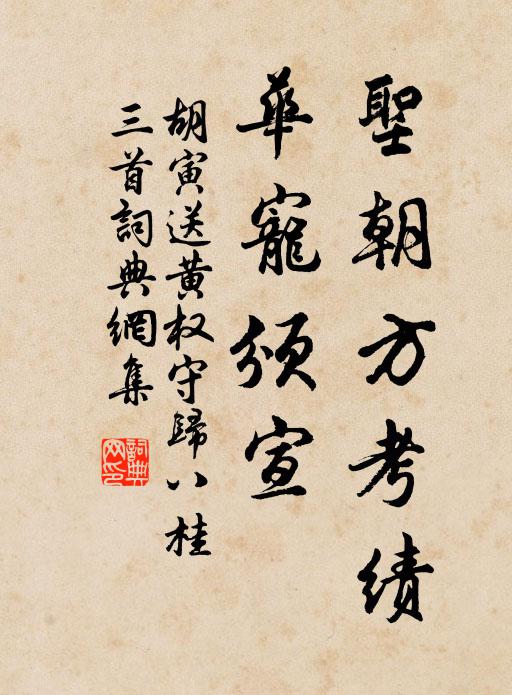 聖朝方考績
華寵頒宣
胡寅送黄权守歸八桂
三首詞典網集
詞典
网印